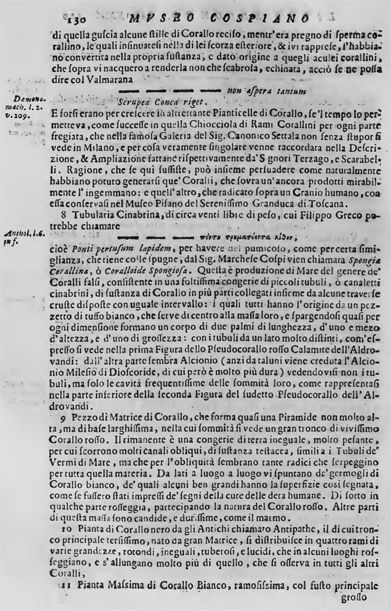 130 MVSEO COSPIANO
di quella guscia alcune stille di Corallo reciso, mentr'era pregno di sperma co-
rallino, le quali insinuatesi nella di lei scorza esteriore, & ivi rapprese, l'habbia-
no convertita nella propria sustanza, e dato origine a quegli aculei corallini,
che sopra vi nacquero a renderla non che scabrosa, echinata, acciò se ne possa
dire col Valmarana
Damono-
mach. l. 2.
v. 209.
non aspera tantum
Scrupea Conca riget.
E forsi erano per crescere in altrettante Pianticelle di Corallo, se'l tempo lo per-
metteva, come succede in quella Chiocciola di Ram Corallini per ogni parte
fregiata, che nella famosa Galeria del Sig. Canonico Settala non senza stupor si
vede in Milano, e per cosa veramente singolare venne raccordata nella Descrizi-
one, & Ampliazione fattane rispettivamente da' Signori Terzago, e Scarabel-
li. Ragione, che se qui sussiste, può insieme persuadere come naturalmente
habbiano potuto generarsi que' Coralli, che sovra un'ancora prodotti mirabil-
mente l'ingemmano: e quell'altro, che radicato sopra un Cranio humano, con
essa conservasi nel Museo Pisano del Serenissimo Granduca di Toscana.
8 Tubularia Cinabrina, di circa venti libre di peso, cui Filippo Greco po-
trebbe chiamare
Anthol. l. 6.
cioè Ponti pertusum lapidem, per havere del pumicoso, come per certa simi-
glianza, che tiene colle spugne, dal Sig. Marchese Cospi vien chiamata Spongia
Corallina, ò Coralloide Spongiosa. Questa è produzione di Mare del genere de'
Coralli falsi, consistente in una foltissima congerie di piccoli tubuli, ò canaletti
cinabrini, di sustanza di Corallo in più parti collegati insieme da alcune traverse
cruste disposte con uguale intervallo: i quali tutti hanno l'origine da un pez-
zetto di tuffo bianco, che serve di centro alla massa loro, e spargendosi quasi per
ogni dimensione formano un corpo di due palmi di lunghezza, d'uno e mezo
d'altezza, e d'uno di grossezza: con i tubuli da un lato molto distinti, com'es-
presso si vede nella prima Figura dello Pseudocorallo rosso Calamite dell'Aldro-
vandi: dall'altra parte sembra Alcionio (anzi da taluni viene creduta l'Alcio-
nio Milesio di Dioscoride, di cui però è molto più dura) vedendovisi non i tu-
buli, ma solo le cavità frequentissime delle sommità loro, come rappresentasi
nella parte inferiore della seconda Figura del sudetto Pseudocorallo dell'Al-
drovandi.
9 Pezzo di Matrice di Corallo, che forma quasi una Piramide non molto al-
ta, ma di base larghissima, nella cui sommità si vede un gran tronco di vivissimo
Corallo rosso. Il rimanente è una congerie di terra ineguale, molto pesante,
per cui scorrono molti canali obliqui, di sustanza testacea, simili a i Tubuli de'
Vermi di Mare, ma che per l'obliquità sembrano tante radici che serpeggino
per tutta quella materia. Da lati a luogo a luogo vi spuntano de' germogli di
Corallo bianco, de' quali alcuni ben grandi hanno la superfizie così segnata,
come se fussero stati impressi de' segni della cute delle dera humane. Di sotto in
qualche parte rosseggia, partecipando la natura del Corallo rosso. Altre parti
di questa massa sono candide, e durissime, come il marmo.
10 Pianta di Corallo nero da gli Antichi chiamato Antipathe, il di cui tron-
co principale tersissimo, nato da gran Matrice, si distribuisce in quattro rami di
varie grandezze, rotondi, ineguali, tuberosi, e lucidi, che in alcuni luoghi ros-
seggiano, e s'allungano molto più di quello, che si osserva in tutti gli altri
Coralli,
11 Pianta Massima di Corallo Bianco, ramosissima, col fusto principale
grosso